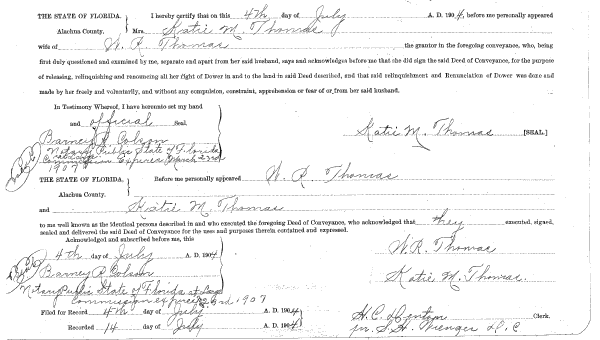 THE STATE OF FLORIDA. I hereby certify that on this 4th day of July A. D. 1904, before me personally appeared
Alachua County. Mrs. Katie M. Thomas
wife of W. R. Thomas the grantor in the foregoing conveyance, who, being
first duly questioned and examined by me, separate and apart from her said husband, says and acknowledges before me that she did sign the said Deed of Conveyance, for the purpose
of releasing, relinquishing and renouncing all her right of Dower in and to the land in said Deed described, and that said relinquishment and Renunciation of Dower was done and
made by her freely and voluntarily, and without any compulsion, constraint, apprehension or fear of or from her said husband.
In Testimony Whereof, I have hereunto set my hand
and official Seal.
Barney R Colson Katie M. Thomas [SEAL]
Notary Public State of Florida
Commission Expires March 23rd
1907
THE STATE OF FLORIDA. Before me personally appeared W. R. Thomas
Alachua County.
and Katie M. Thomas
to me well known as the identical persons described in and who executed the foregoing Deed of Conveyance, who acknowledged that they executed, signed,
sealed and delivered the said Deed of Conveyance for the uses and purposes therein contained and expressed.
Acknowledged and subscribed before me, this
4th day of July A. D. 1904 W. R. Thomas
Barney R Colson Katie M. Thomas.
Notary Public State of Florida at Large
Commission expires 23rd 1907
Filed for Record 4th day of July A. D. 1904 H. C. Denton Clerk.
Recorded 14 day of July A. D. 1904 D. C